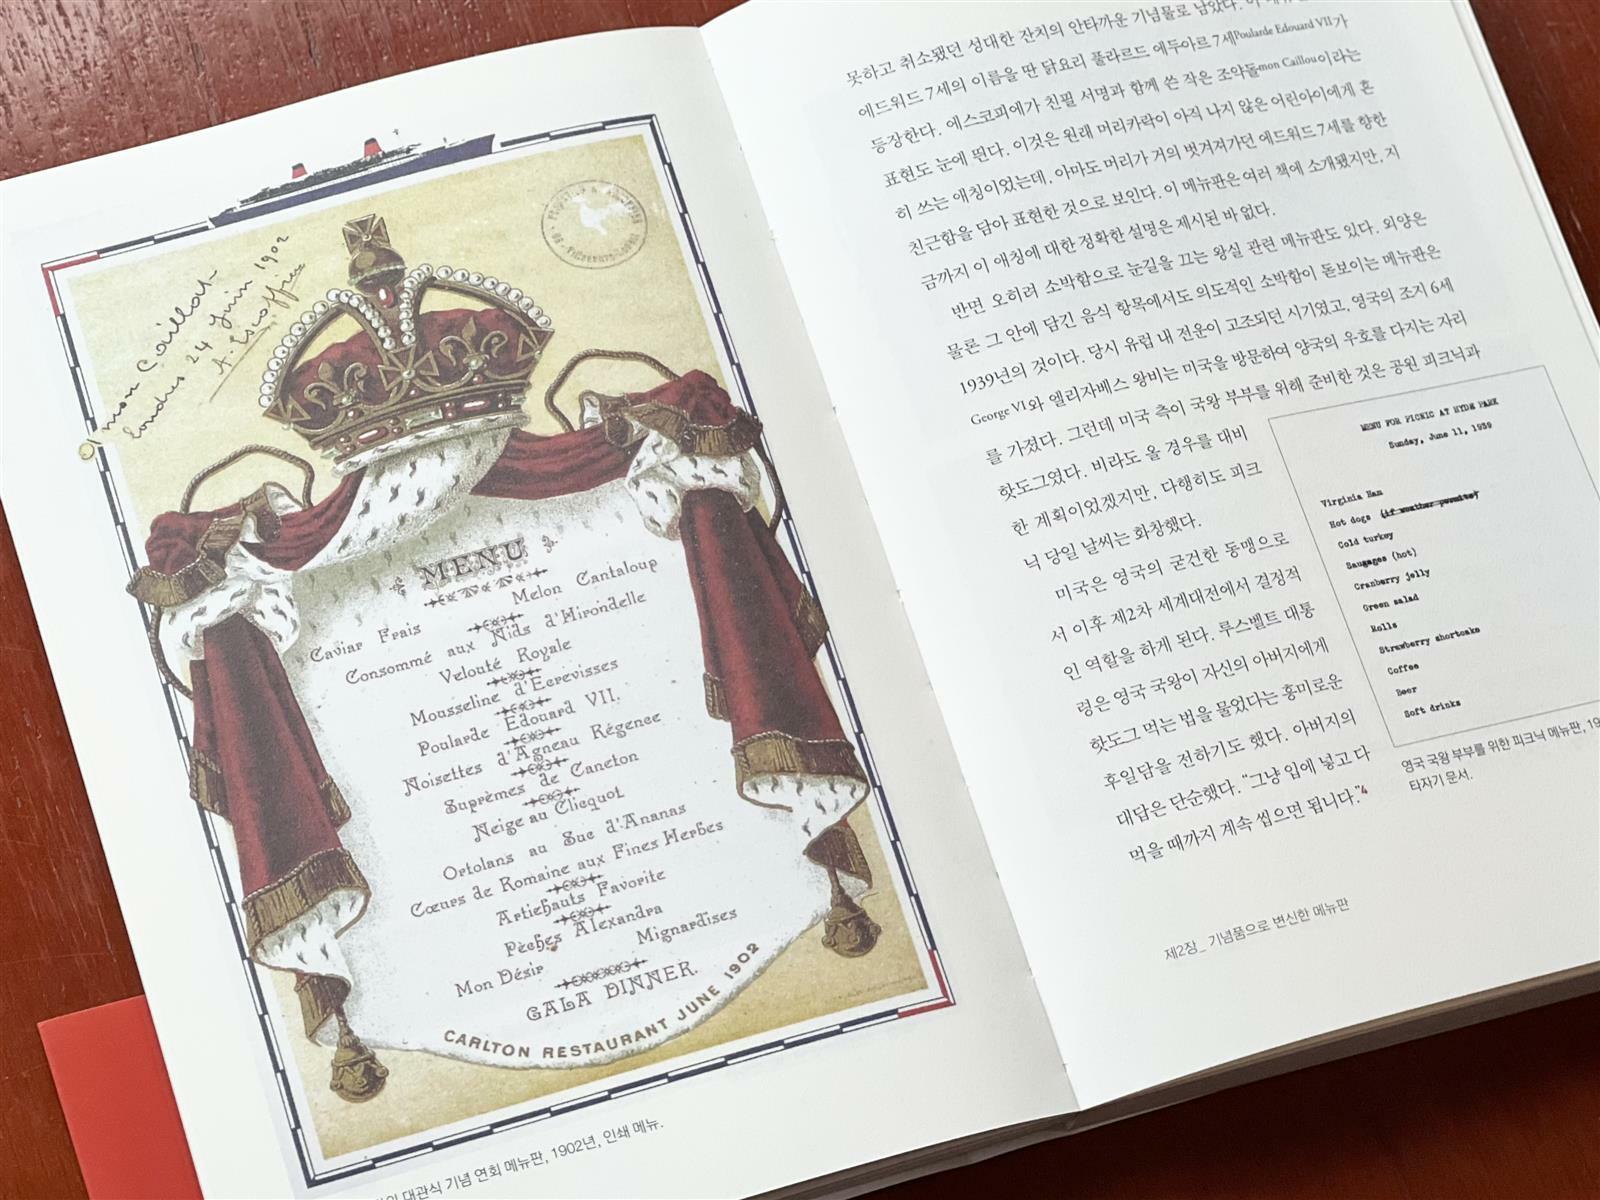 mon Caillou
Londres 24 Juin 1902
A. Escoffier
MENU
Melon Cantaloup
Caviar Frais
Consommé aux Nids d'Hirondelle
Velouté Royale
Mousseline d'Ecrevisses
Poularde Edouard VII.
Noisettes d'Agneau Régence
Suprèmes de Caneton
Neige au Clicquot
Ortolans au Suc d'Ananas
Cœurs de Romaine aux Fines Herbes
Artichauts Favorite
Pèches Alexandra
Mignardises
Mon Désir
GALA DINNER.
CARLTON RESTAURANT JUNE 1902
대관식 기념 연회 메뉴판, 1902년, 인쇄 메뉴.
못하고 취소됐던 성대한 잔치의 안타까운 기념물로 남았다. 이
에드워드 7세의 이름을 딴 닭요리 풀라르드 에두아르 7세Poularde Edouard VII가
등장한다. 에스코피에가 친필 서명과 함께 쓴 작은 조약돌mon Caillou이라는
표현도 눈에 띈다. 이것은 원래 머리카락이 아직 나지 않은 어린아이에게 흔
히 쓰는 애칭이었는데, 아마도 머리가 거의 벗겨져가던 에드워드 7세를 향한
친근함을 담아 표현한 것으로 보인다. 이 메뉴판은 여러 책에 소개됐지만, 지
금까지 이 애칭에 대한 정확한 설명은 제시된 바 없다.
반면 오히려 소박함으로 눈길을 끄는 왕실 관련 메뉴판도 있다. 외양은
물론 그 안에 담긴 음식 항목에서도 의도적인 소박함이 돋보이는 메뉴판은
1939년의 것이다. 당시 유럽 내 전운이 고조되던 시기였고, 영국의 조지 6세
George VI와 엘리자베스 왕비는 미국을 방문하여 양국의 우호를 다지는 자리
를 가졌다. 그런데 미국 측이 국왕 부부를 위해 준비한 것은 공원 피크닉과
핫도그였다. 비라도 올 경우를 대비
한 계획이었겠지만, 다행히도 피크
닉 당일 날씨는 화창했다.
미국은 영국의 굳건한 동맹으로
서 이후 제2차 세계대전에서 결정적
인 역할을 하게 된다. 루스벨트 대통
령은 영국 국왕이 자신의 아버지에게
핫도그 먹는 법을 물었다는 흥미로운
후일담을 전하기도 했다. 아버지의
대답은 단순했다. "그냥 입에 넣고 다
먹을 때까지 계속 씹으면 됩니다."4
MENU FOR PICNIC AT HYDE PARK
Sunday, June 11, 1939
Virginia Ham
Hot dogs (if weather permits)
Cold turkey
Sausages (hot)
Cranberry jelly
Green salad
Rolls
Strawberry shortcake
Coffee
Beer
Soft drinks
영국 국왕 부부를 위한 피크닉 메뉴판, 19
타자기 문서.
제2장_ 기념품으로 변신한 메뉴판